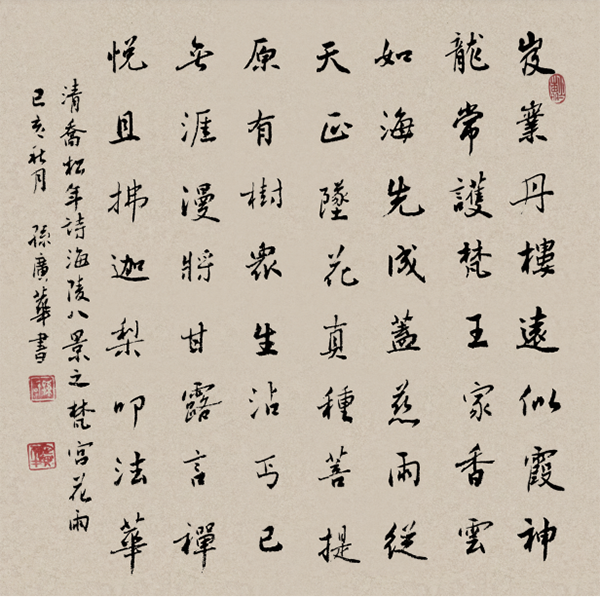 岌業丹樓遠似霞神
龍常護梵王家香雲
如海先成蓋慈雨從
天正墜花真種菩提
原有樹衆生沾丐已
無涯漫將甘露言禪
悅且拂迦梨叩法華
清喬松年詩海陵八景之梵宮花雨
己亥秋月 孫廣華書